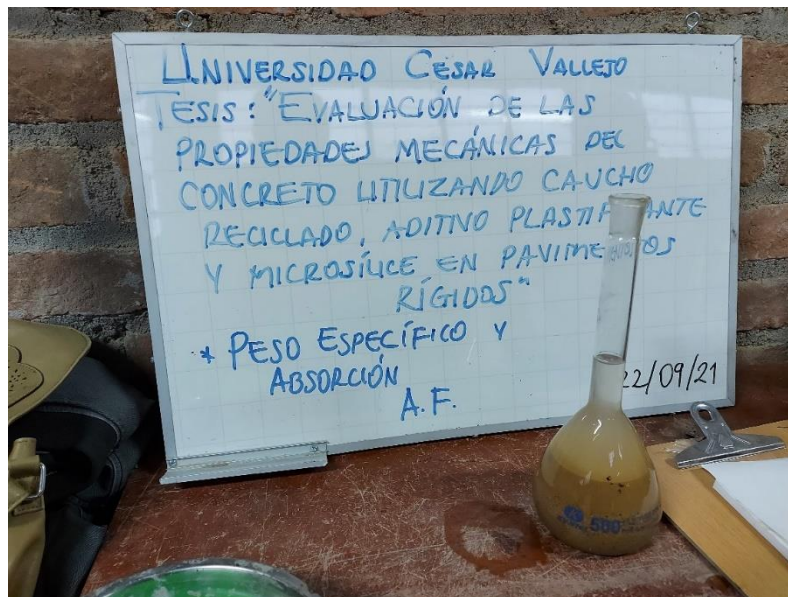 UNIVERSIDAD CÉSAR VALLEJO
TESIS: "EVALUACIÓN DE LAS
PROPIEDADES MECÁNICAS DEL
CONCRETO UTILIZANDO CAUCHO
RECICLADO, ADITIVO PLASTIFICANTE
Y MICROSÍLICE EN PAVIMENTOS
RÍGIDOS"
* PESO ESPECÍFICO Y
ABSORCIÓN
A.F.
22/09/21
500